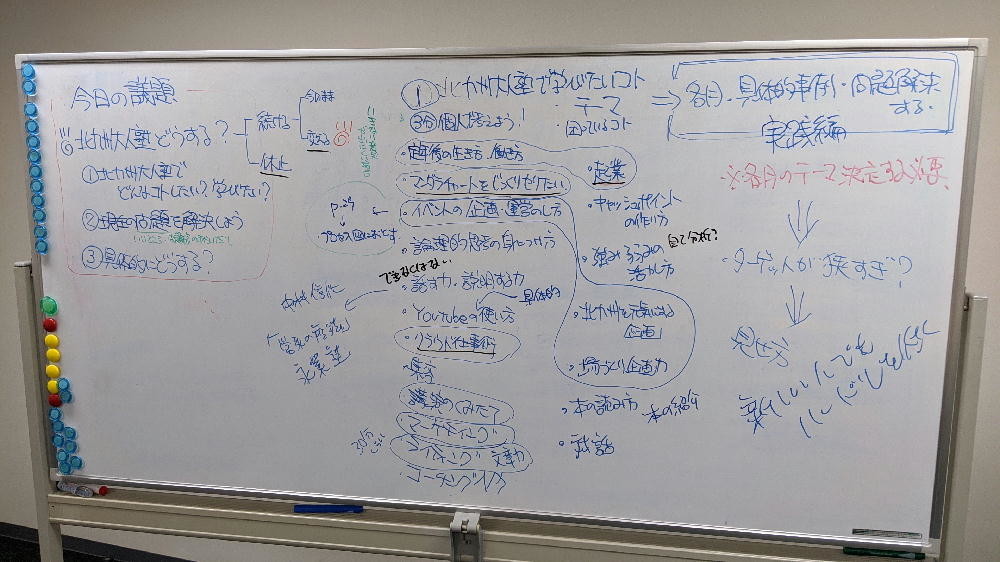 今日の議題
北九州大人塾どうする？
続ける
今のまま
変える
休止
①北九州大人塾で
どんなコトしたい？学びたい？
②現在の問題を解決しよう
③具体的にどうする？
① 北九州大人塾で学びたいコト
・テーマ
・困っているコト
3分個人で考えよう！
・定年後の生き方、働き方
・マンダラチャートをじっくりやりたい
・イベントの企画・運営のし方
・論理的思考の身につけ方
できなくはない
・話す力・説明する力
・Youtubeの使い方
具体的
・クラウド仕事術
・集客
・講演のしくみたて
・マーケティング
・ライティング 文章力
・コーチング
・起業
・キャッシュポイント
の作り方
自己分析？
・強み弱みの
活かし方
・北九州を元気にする
企画
・場づくり企画力
・本の読み方
本の紹介
・対話
⇒
各月、具体的事例・問題解決
する
実践編
※各月のテーマ決定する必要
・ターゲットが狭すぎ？
見せ方